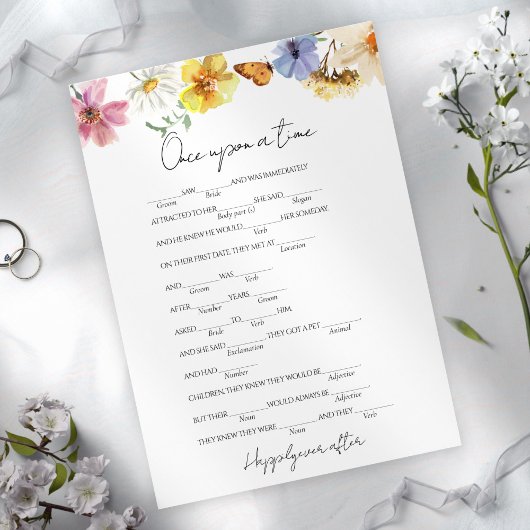 Once upon a time
________ SAW ________ AND WAS IMMEDIATELY
Groom Bride
ATTRACTED TO HER ________. SHE SAID, ________
Body part (s) Slogan
AND HE KNEW HE WOULD ________ HER SOMEDAY.
Verb
ON THEIR FIRST DATE, THEY MET AT ________.
Location
AND ________ WAS ________.
Groom Verb
AFTER ________ YEARS, ________
Number Groom
ASKED ________ TO ________ HIM.
Bride Verb
AND SHE SAID ________, THEY GOT A PET ________,
Exclamation Animal
AND HAD ________
Number
CHILDREN. THEY KNEW THEY WOULD BE ________,
Adjective
BUT THEIR ________ WOULD ALWAYS BE ________.
Noun Adjective
THEY KNEW THEY WERE ________ AND THEY ________
Noun Verb
Happily ever after